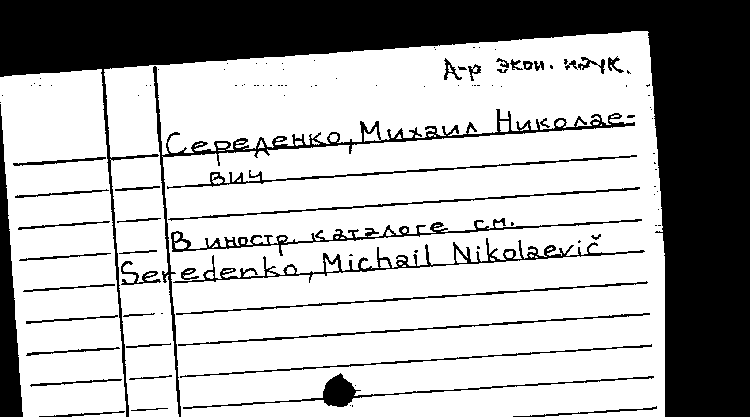 Д-р экон. наук.
Середенко, Михаил Николае-
вич
В иностр. каталоге см.
Seredenko, Michail Nikolaevič